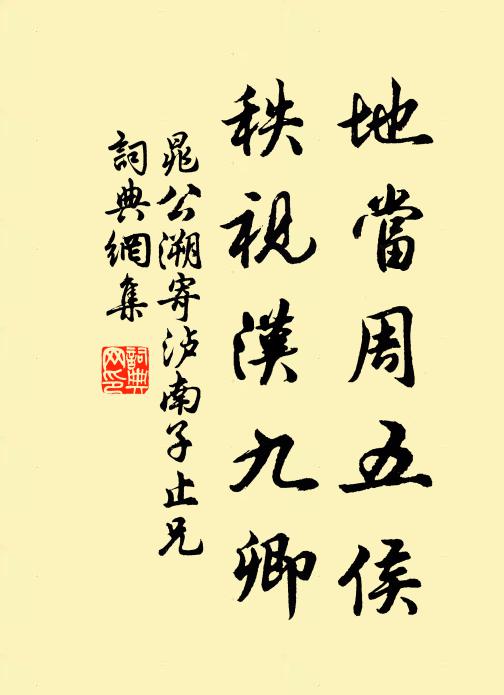 地當周五侯
秩視漢九卿
晁公溯寄泸南子止兄
詞典網集
詞典
网印